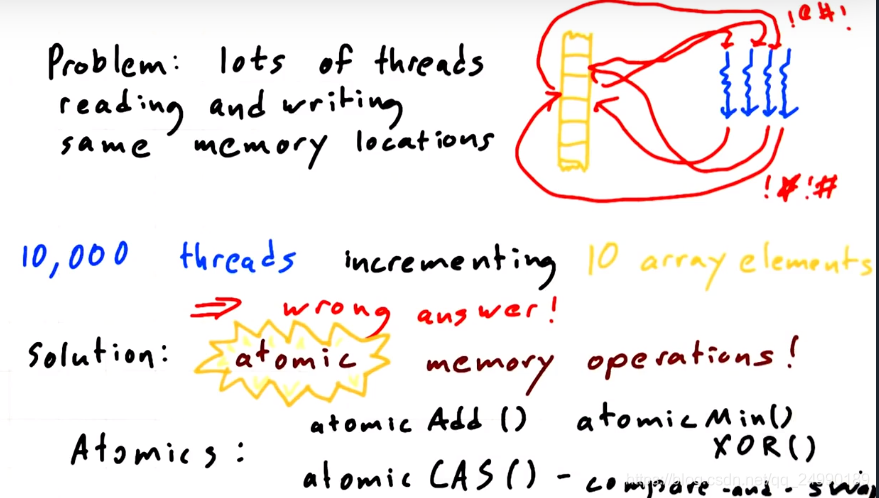 !@#!
Problem: lots of threads
reading and writing
same memory locations
!*!#
10,000 threads incrementing 10 array elements
⇒ wrong answer!
Solution: atomic memory operations!
Atomics: atomic Add () atomic Min()
XOR()
atomic CAS() - compare-and-swap